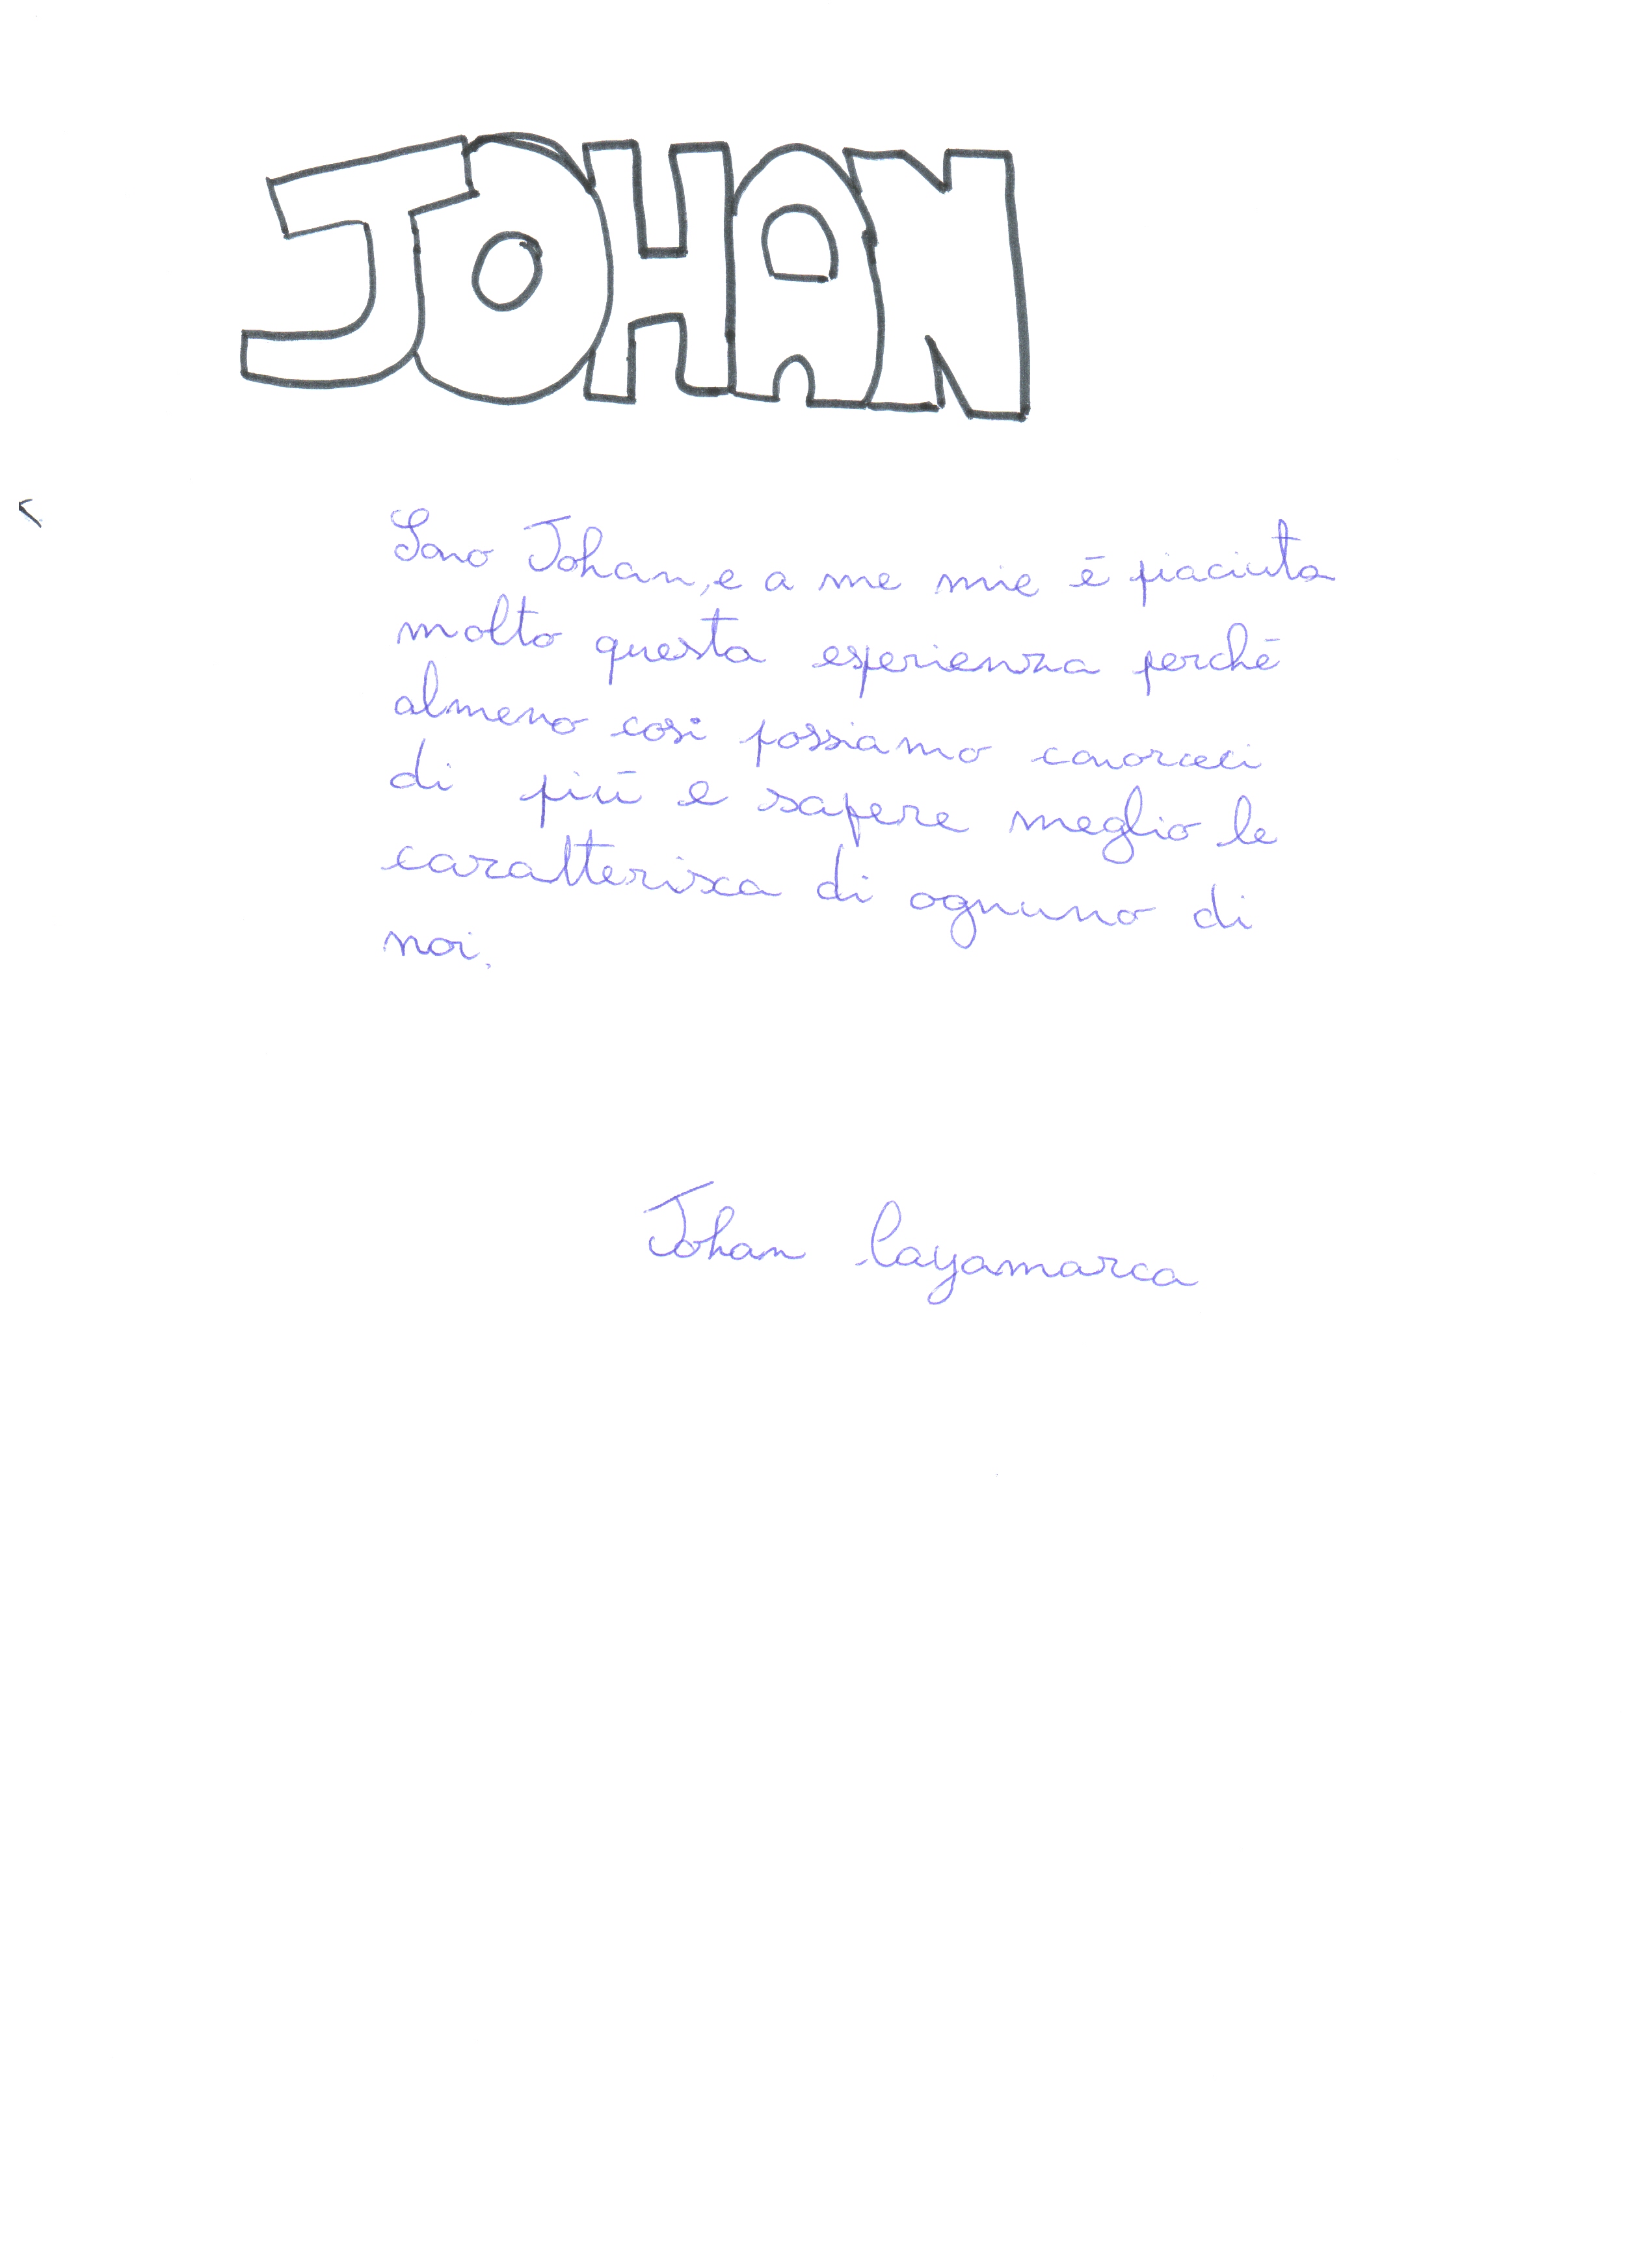 JOHAN
Sono Johan, e a me mie è piaciuta
molto questa esperienza perchè
almeno così possiamo conorceci
di più e sapere meglio le
caratterisca di ognuno di
noi.
Johan Cayamarca